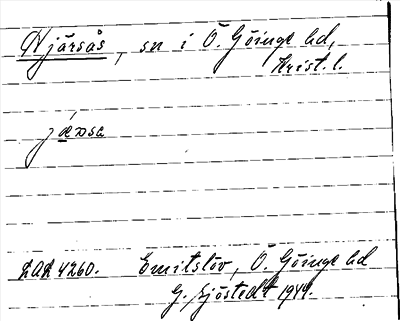 Njärsås, sn i Ö. Göinge hd,
Krist. l.
LAL 4260. Emitslöv, Ö. Göinge hd
G. Sjöstedt 1944.